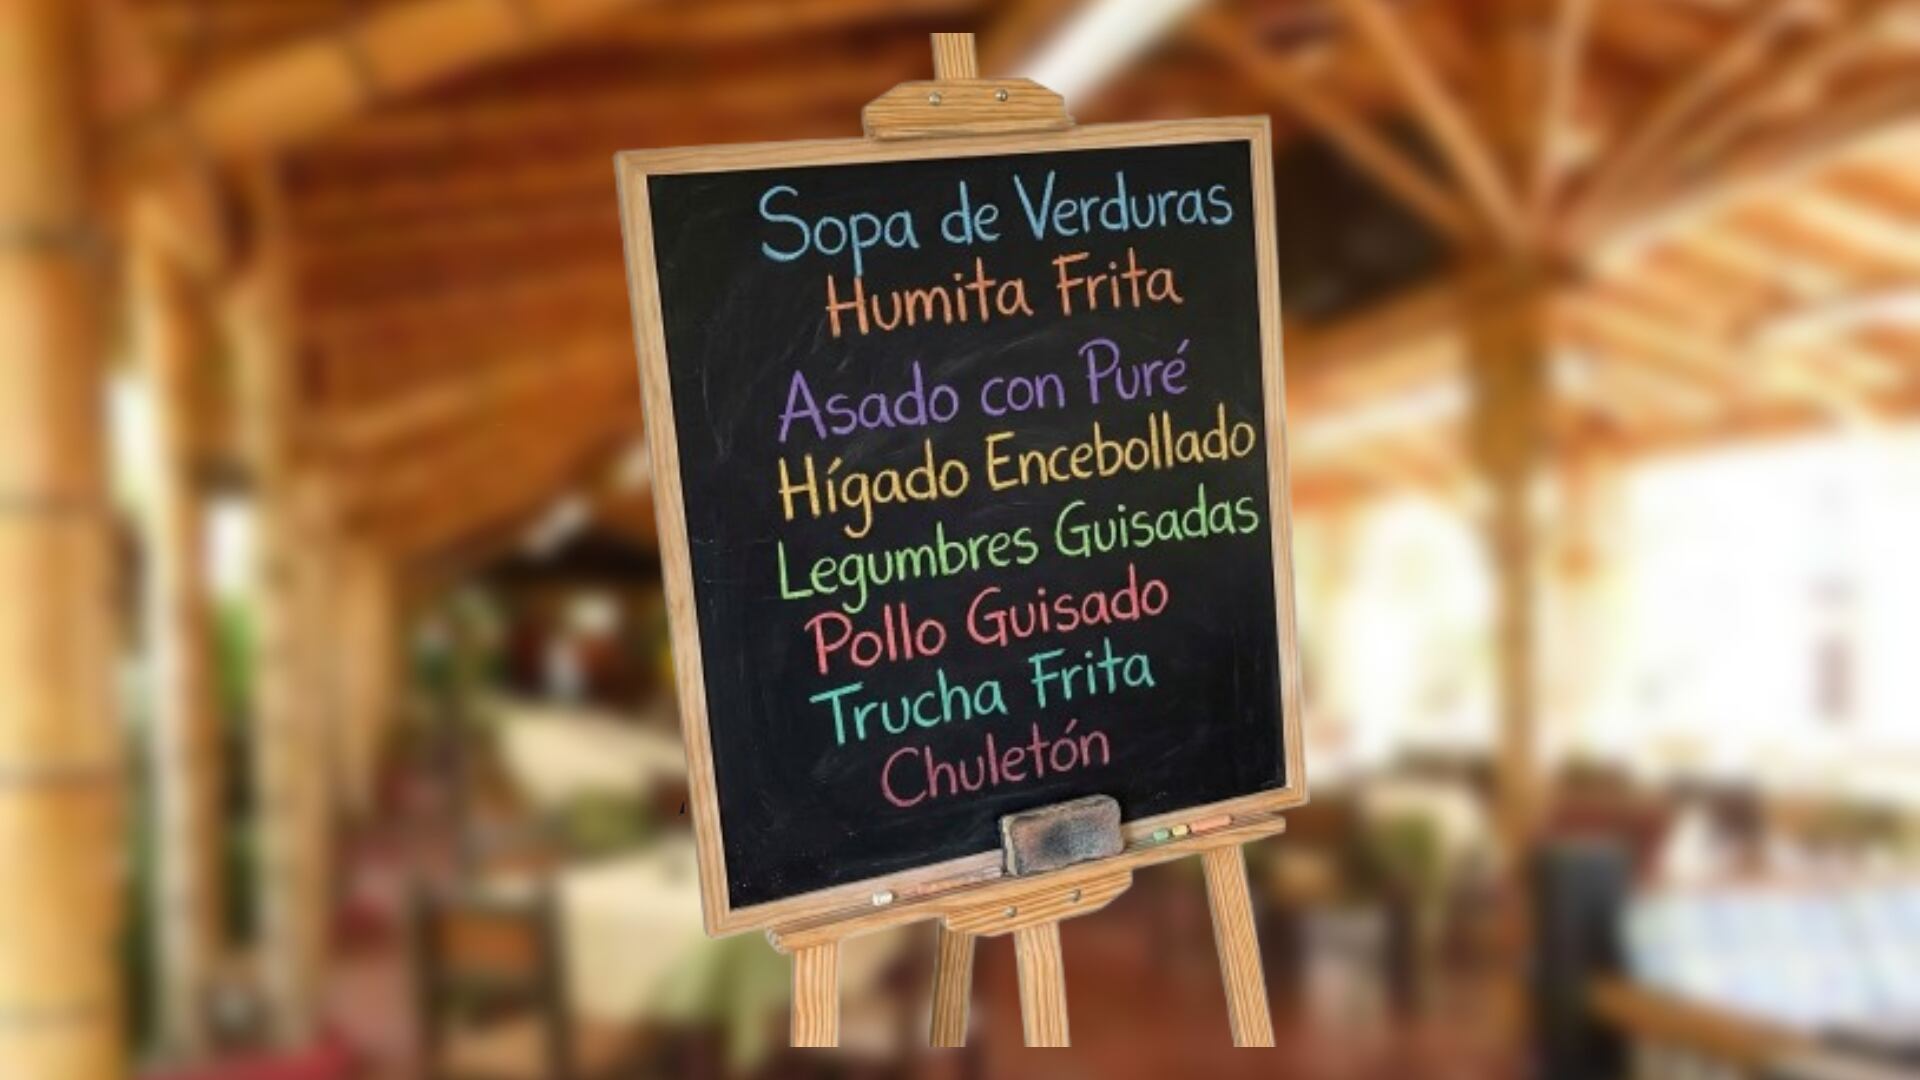 Sopa de Verduras
Humita Frita
Asado con Puré
Hígado Encebollado
Legumbres Guisadas
Pollo Guisado
Trucha Frita
Chuletón